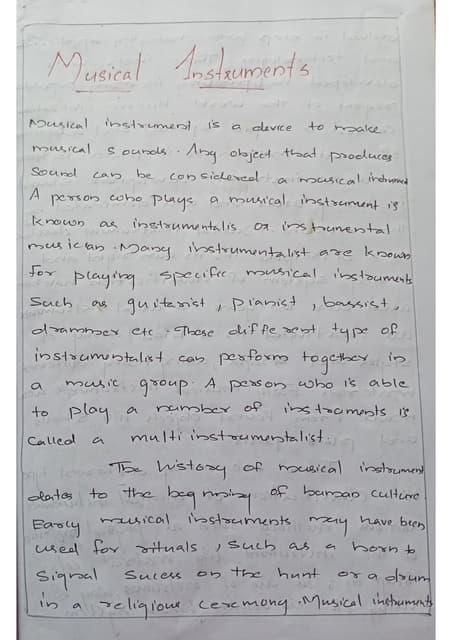 Musical Instruments
Musical instrument is a device to make
musical sounds. Any object that produces
sound can be considered a musical instrument
A person who plays a musical instrument is
known as instrumentalis or instrumental
musician. Many instrumentalist are known
for playing specific musical instruments
such as guitarist, pianist, bassist,
drammer etc. These different type of
instrumentalist can perform together in
a music group. A person who is able
to play a number of instruments is
called a multi instrumentalist.
The history of musical instrument
dates to the beginning of human culture.
Early musical instruments may have been
used for rituals, such as a horn to
signal sucess on the hunt or a drum
in a religious ceremony. Musical instruments